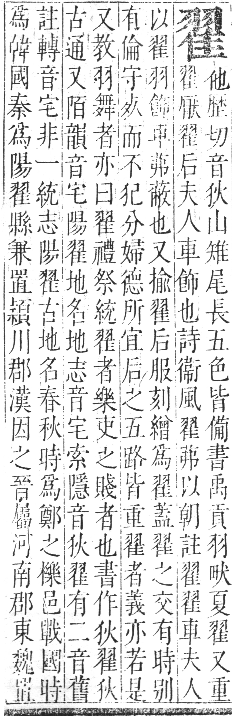 翟
他歷切音狄山雉尾長五色皆備書禹貢羽畎夏翟又重
翟厭翟后夫人車飾也詩衛風翟茀以朝註翟翟車夫人
以翟羽飾車茀蔽也又揄翟后服刻繒爲翟蓋翟之交有時別
有倫守死而不犯分婦德所宜后之五路皆重翟者義亦若是
又教羽舞者亦曰翟禮祭統翟者樂吏之賤者也書作狄翟狄
古通又陌韻音宅陽翟地名地志音宅索隱音狄翟有二音舊
註轉音宅非一統志陽翟古地名春秋時爲鄭之櫟邑戰國時
爲韓國秦爲陽翟縣兼置潁川郡漢因之晉屬河南郡東魏置